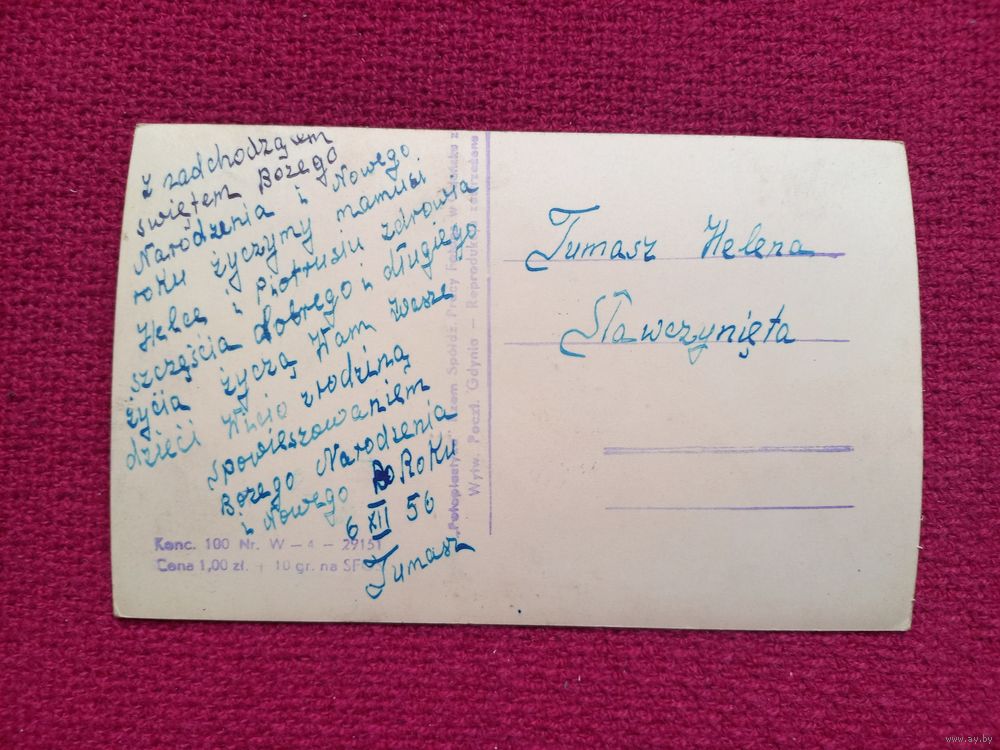 z nadchodzącem
świętem Bożego
Narodzenia i Nowego
roku życzymy mamusi
Helce i piotrusiu zdrowia
szczęścia dobrego i długiego
życia życzą Wam Wasze
dzieci Wicio zrodziną
spowieszowaniem
Bożego Narodzenia
i Nowego Roku
6 XII 56
Tumasz
Konc. 100 Nr. W – 4 – 29151
Cena 1,00 zł. + 10 gr. na SF
"Fotoplastyk" Spółdz. Pracy w
Wytw. Poczt. Gdynia – Reprodukcja zastrzeżona
Tumasz Helena
Sławczynięta
www.ay.by